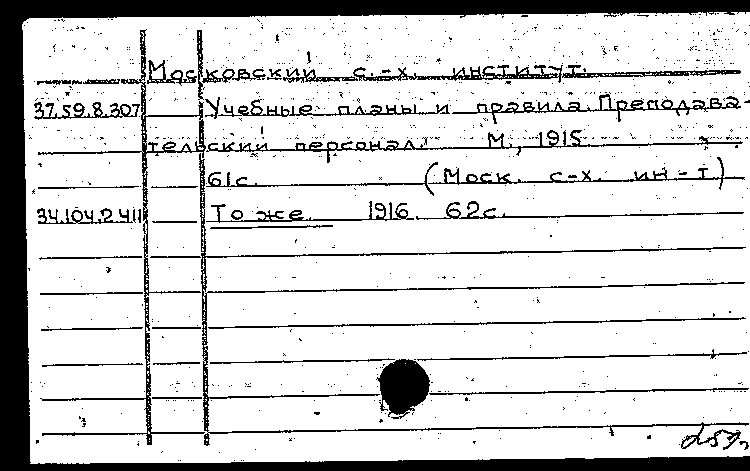 Московский с.-х. институт.
37.59.8.307 Учебные планы и правила. Преподава-
тельский персонал. М., 1915
61с. (Моск. с-х. ин-т)
34.104.2.411 То же. 1916. 62с.